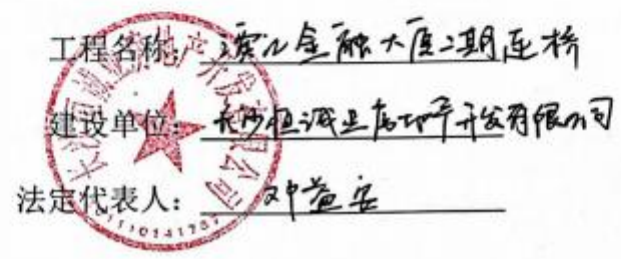 工程名称：滨江金融大厦二期连桥
建设单位：长沙恒诚业房地产开发有限公司
法定代表人：邓益安